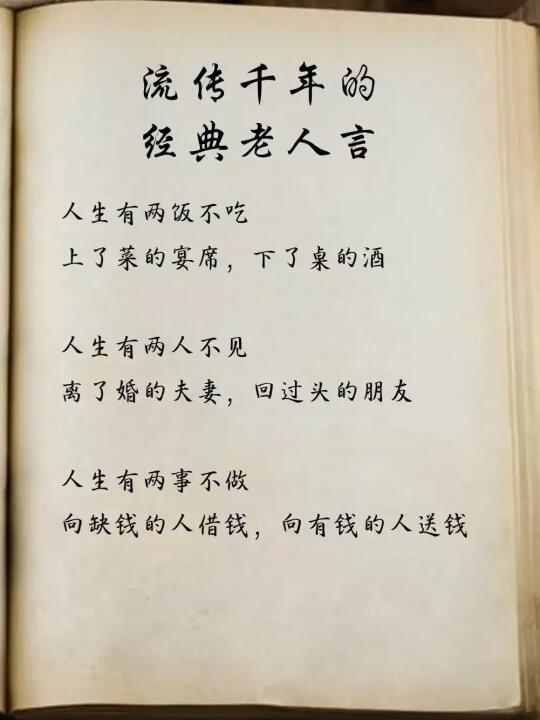 流传千年的
经典老人言
人生有两饭不吃
上了菜的宴席，下了桌的酒
人生有两人不见
离了婚的夫妻，回过头的朋友
人生有两事不做
向缺钱的人借钱，向有钱的人送钱